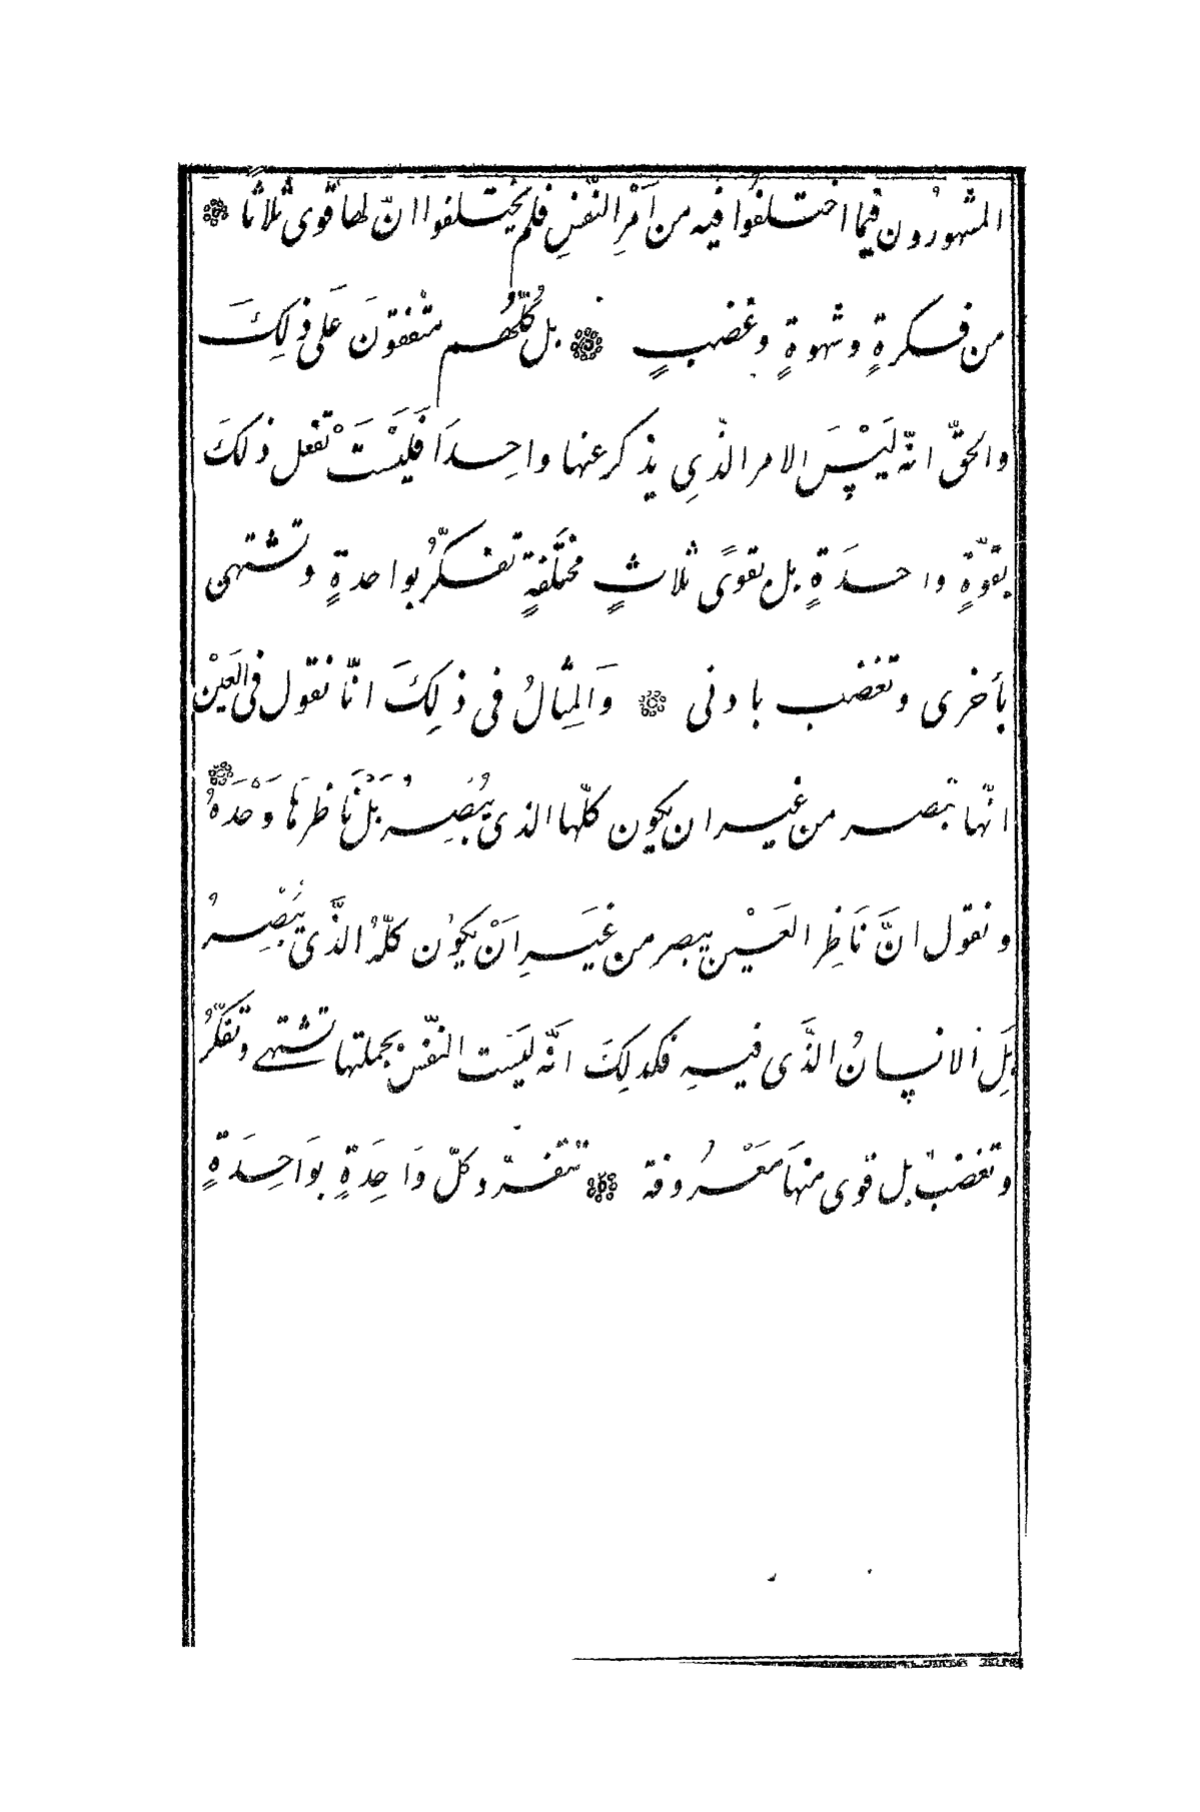 المشهورُون فيما اختلفوُا فيه من اَمْرِ النّفسِ فلم يختلفوا انّ لها قوى ثلاثا ❊
من فكرةٍ وشهوةٍ وغضبٍ ❊ بل كُلّهُم متّفقونَ عَلى ذلِكَ
والحقّ انّه لَيْسَ الامر الذي يذكر عنها واحِدَا فَليَسْتَ تفعل ذلكَ
بقوّةٍ واحدَةٍ بل بقوىً ثلاثٍ مختَلفةٍ تفكّرُ بواحدةٍ وتشتهى
بأخرى وتغضب باونى ❊ وَالمِثالُ فى ذلِكَ انّا نقول فى العَيْن
انّها تبصر من غير ان يكون كلّها الذى يُبصِرُ بَلْ نَاظرهَا وَحْدَهُ ❊
ونقول انَّ نَاظِر العَيْن يبصر من غَيرِ اَنْ يكوُن كلّهُ الذَّى يُبْصِرُ
بَلِ الانسانُ الذَّى فيهِ فكذلِكَ اَنَّه ليَسَت النّفسْ بجملتها تشتهى وتفكّرُ
وتغضب بل قوى منهَا مَعْرُوفة ❊ تتفرّد كلّ وَاحِدَةٍ بوَاحِدَةٍ